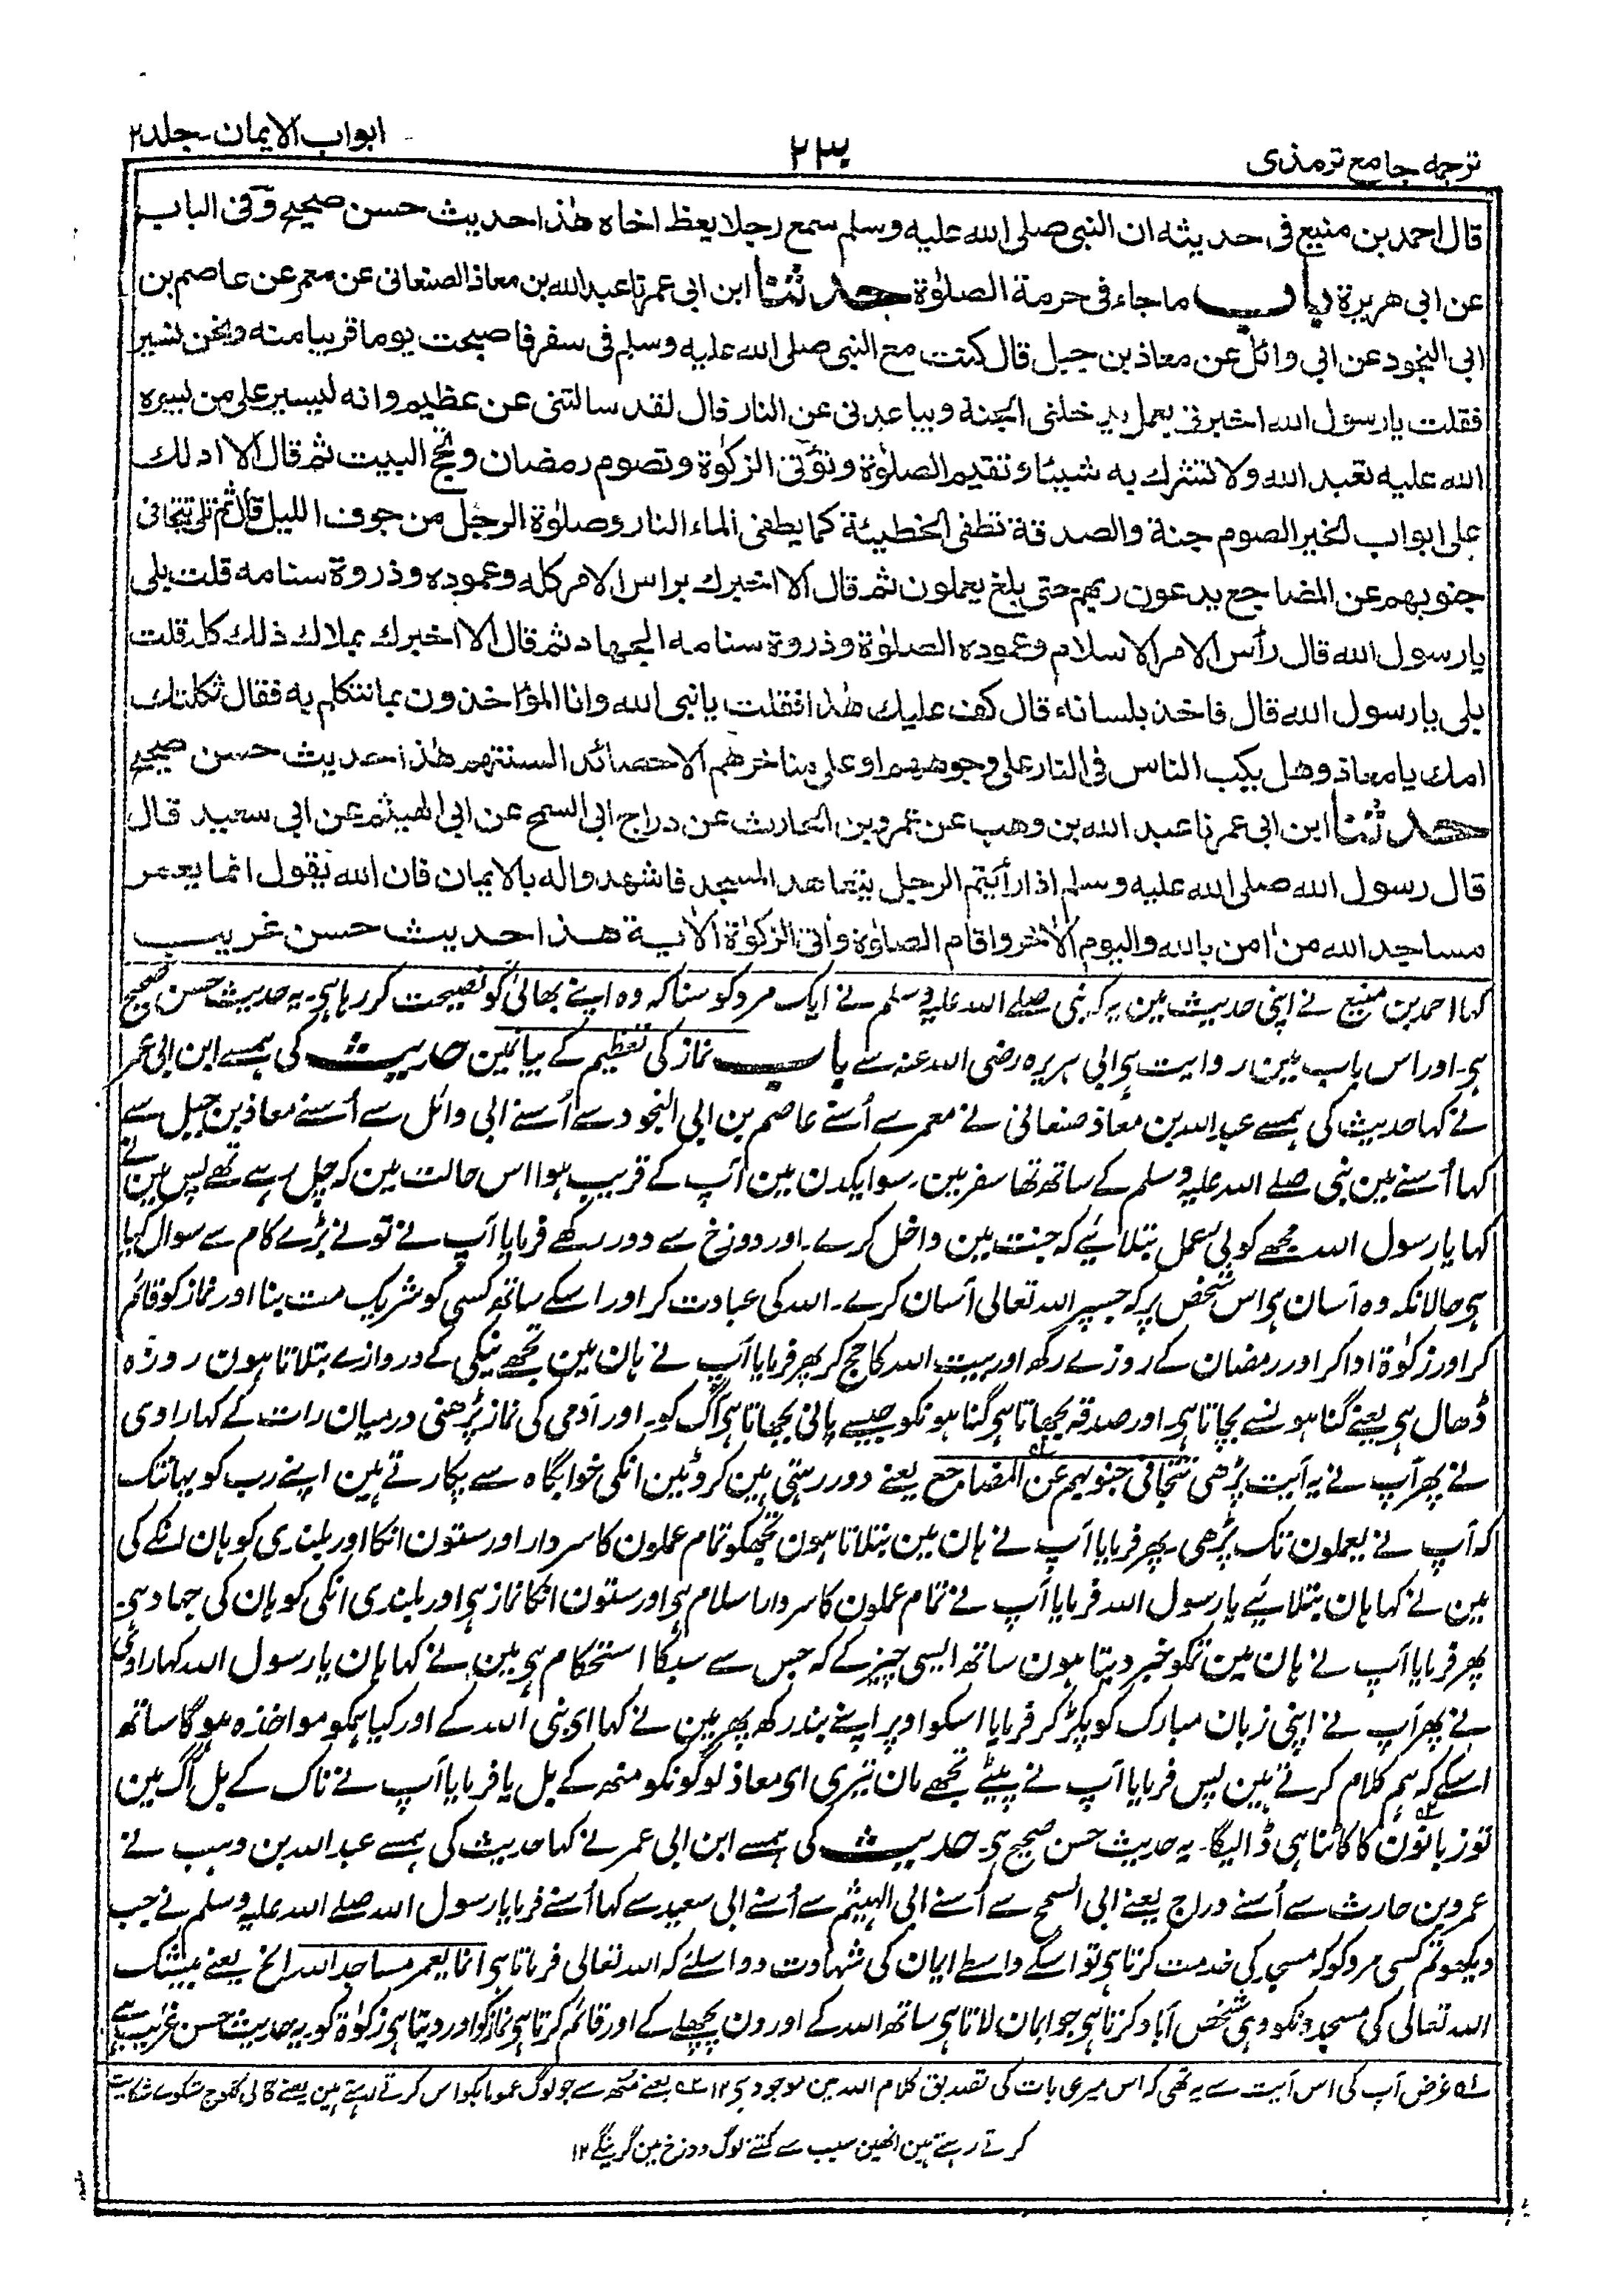 ترجمہ جامع ترمذی
۲۳۰
ابواب الایمان۔جلد۲
قال احمد بن منيع فى حديثه ان النبى صلى الله عليه وسلم سمع رجلا يعظ اخاه هذا حديث حسن صحيح وفى الباب
عن ابى هريرة باب ما جاء فى حرمة الصلوٰة حدثنا ابن ابى عمر نا عبد الله بن معاذ الصنعانى عن معمر عن عاصم بن
ابى النجود عن ابى وائل عن معاذ بن جبل قال كنت مع النبى صلى الله عليه وسلم فى سفر فاصبحت يوما قريبا منه ونحن نسير
فقلت يا رسول الله اخبرنى بعمل يدخلنى الجنة ويباعدنى عن النار قال لقد سالتنى عن عظيم وانه ليسير على من يسره
الله عليه تعبد الله ولا تشرك به شيئا وتقيم الصلوٰة وتؤتى الزكوٰة وتصوم رمضان وتحج البيت ثم قال الا ادلك
على ابواب الخير الصوم جنة والصدقة تطفئ الخطيئة كما يطفئ الماء النار وصلوٰة الرجل من جوف الليل قال ثم تلى تتجافى
جنوبهم عن المضاجع يدعون ربهم حتى بلغ يعملون ثم قال الا اخبرك براس الامر كله وعموده وذروة سنامه قلت بلى
يا رسول الله قال رأس الامر الاسلام وعموده الصلوٰة وذروة سنامه الجهاد ثم قال الا اخبرك بملاك ذلك كله قلت
بلى يا رسول الله قال فاخذ بلسانه قال كف عليك هذا فقلت يا نبى الله وانا المؤاخذون بما نتكلم به فقال ثكلتك
امك يا معاذ وهل يكب الناس فى النار على وجوههم او على مناخرهم الا حصائد السنتهم هذا حديث حسن صحيح
حدثنا ابن ابى عمر نا عبد الله بن وهب عن عمرو بن الحارث عن دراج ابى السمح عن ابى الهيثم عن ابى سعيد قال
قال رسول الله صلى الله عليه وسلم اذا رأيتم الرجل يتعاهد المسجد فاشهدوا له بالايمان فان الله يقول انما يعمر
مساجد الله من اٰمن بالله واليوم الاٰخر واقام الصلوٰة واٰتى الزكوٰة الاٰية هذا حديث حسن غريب
کہا احمد بن منیع نے اپنی حدیث مین یہ کہ نبی صلے اللہ علیہ وسلم نے ایک مرد کو سنا کہ وہ اپنے بھائی کو نصیحت کر رہا ہی۔ یہ حدیث حسن صحیح
ہی۔ اور اس باب مین روایت ہی ابی ہریرہ رضی اللہ عنہ سے باب نماز کی تعظیم کے بیانمین حدیث کی ہمسے ابن ابی عمر
نے کہا حدیث کی ہمسے عبداللہ بن معاذ صنعانی نے معمر سے اُسنے عاصم بن ابی النجود سے اُسنے ابی وائل سے اُسنے معاذ بن جبل سے
کہا اُسنے مین نبی صلے اللہ علیہ وسلم کے ساتھ تھا سفر مین۔ سو ایکدن مین آپ کے قریب ہوا اس حالت مین کہ چل رہے تھے پس مین نے
کہا یا رسول اللہ مجھے کوئی عمل بتلائیے کہ جنت مین داخل کرے۔ اور دوزخ سے دور رکھے فرمایا آپ نے تونے بڑے کام سے سوال کیا
ہی حالانکہ وہ آسان ہی اس شخص پر کہ جسپر اللہ تعالی آسان کرے۔ اللہ کی عبادت کر اور اسکے ساتھ کسی کو شریک مت بنا اور نماز کو قائم
کر اور زکوٰۃ ادا کر اور رمضان کے روزے رکھ اور بیت اللہ کا حج کر پھر فرمایا آپ نے ہان مین تجھے نیکی کے دروازے بتلاتا ہون روزہ
ڈھال ہی یعنے گناہونسے بچاتا ہی۔ اور صدقہ بجھاتا ہی گناہونکو جیسے پانی بجھاتا ہی آگ کو۔ اور آدمی کی نماز پڑھنی درمیان رات کے کہا راوی
نے پھر آپ نے یہ آیت پڑھی تتجافی جنوبہم عن المضاجع یعنے دور رہتی ہین کروٹین انکی خوابگاہ سے پکارتے ہین اپنے رب کو یہانتک
کہ آپ نے یعملون تک پڑھی۔ پھر فرمایا آپ نے ہان مین بتلاتا ہون تجھکو تمام عملون کا سردار اور ستون انکا اور بلندی کوہان انکے کی
مین نے کہا ہان بتلائیے یا رسول اللہ فرمایا آپ نے تمام عملون کا سردار اسلام ہی اور ستون انکا نماز ہی اور بلندی انکی کوہان کی جہاد ہی۔
پھر فرمایا آپ نے ہان مین تمکو خبر دیتا ہون ساتھ ایسی چیز کے کہ جس سے سبکا استحکام ہی مین نے کہا ہان یا رسول اللہ کہا راوی
نے پھر آپ نے اپنی زبان مبارک کو پکڑ کر فرمایا اسکو اوپر اپنے بند رکھ پھر مین نے کہا ای نبی اللہ کے اور کیا ہمکو مواخذہ ہوگا ساتھ
اسکے کہ ہم کلام کرتے ہین پس فرمایا آپ نے پیٹے تجھے مان تیری ای معاذ لوگونکو منھ کے بل یا فرمایا آپ نے ناک کے بل آگ مین
تو زبانون کا کاٹنا ہی ڈالیگا۔ یہ حدیث حسن صحیح ہی۔ حدیث کی ہمسے ابن ابی عمر نے کہا حدیث کی ہمسے عبداللہ بن وہب نے
عمرو بن حارث سے اُسنے دراج یعنے ابی السمح سے اُسنے ابی الہیثم سے اُسنے ابی سعید سے کہا اُسنے فرمایا رسول اللہ صلے اللہ علیہ وسلم نے جب
دیکھو تم کسی مرد کو کہ مسجد کی خدمت کرتا ہی تو اسکے واسطے ایمان کی شہادت دو اسلئے کہ اللہ تعالی فرماتا ہی انما یعمر مساجد اللہ الخ یعنے بیشک
اللہ تعالی کی مسجدونکو وہی شخص آباد کرتا ہی جو ایمان لاتا ہی ساتھ اللہ کے اور دن پچھلے کے اور قائم کرتا ہی نماز کو اور دیتا ہی زکوٰۃ کو۔ یہ حدیث حسن غریب ہے
لہ غرض آپ کی اس آیت سے یہ تھی کہ اس میری بات کی تصدیق کلام اللہ مین موجود ہی ۱۲ ۲ہ یعنے منھ سے جو لوگ عموما بکواس کرتے رہتے ہین یعنے گالی گلوج شکوے شکایت
کرتے رہتے ہین انھین سبب سے کتنے لوگ دوزخ مین گرینگے ۱۲